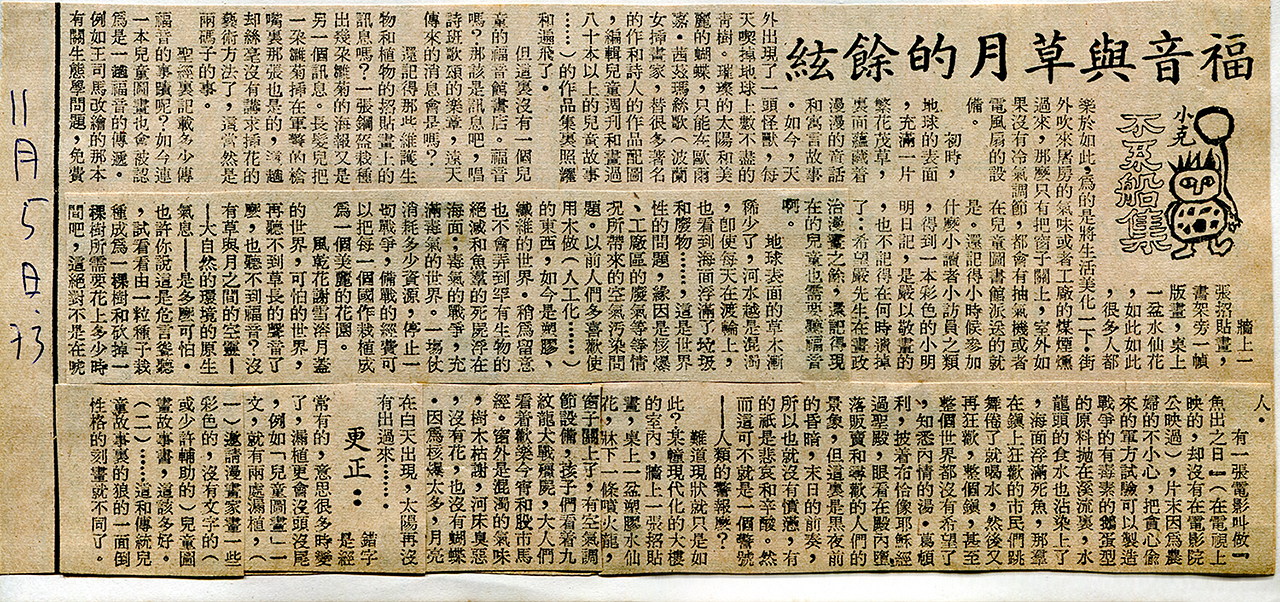 福音與草月的餘絃
小克
不系船集
牆上一
張招貼畫，
書架旁一幀
版畫，桌上
一盆水仙花
，如此如此
，很多人都
樂於如此，為的是將生活美化一下。街
外吹來居房的氣味或者工廠的煤煙燻
過來，那麼只有把窗子關上，室外如
果沒有冷氣調節，都會有抽氣機或者
電風扇的設
備。
初時，
地球的表面
，充滿一片
繁花茂草，
裏面蘊藏着
漫漫的童話
和寓言故事
。如今，天
外出現了一頭怪獸，每
天喫掉地球上數不盡的
青樹。璀璨的太陽和美
麗的蝴蝶，只能在歐爾
嘉·茜茲瑪絲歌（波蘭
女揷畫家，替很多著名
的作品和詩人的作品配圖
，編輯兒童週刊和畫過
八十本以上的兒童故事
……）的作品集裏照躍
和遍飛了。
但這裏沒有一個兒
童的福音書店。福音
嗎？那該是訊息吧，唱
詩班歌頌的樂章，遠天
傳來的消息會是嗎？
還記得那些維護生
物和植物的招貼畫上的
訊息嗎？一張鋼盔栽種
出幾朵雛菊的海報又是
另一個訊息。長髮兒把
一朵雛菊揷在軍警的槍
嘴裏那張也是的，這趟
却絲毫沒有講求揷花的
藝術方法了，這當然是
兩碼子的事。
聖經裏記載多少傳
福音的事蹟呢？如今連
一本兒童圖畫也會被認
為是一趟福音的傳遞。
例如王司馬改繪的那本
有關生態學問題，免費
在兒童圖書館派送的就
是。還記得小時候參加的
什麼小讀者小訪員之類
，得到一本彩色的小明
明日記，是嚴以敬畫的
了；也不記得在何時遺掉
了；希望嚴先生在畫政
治漫畫之餘，還記得現
在的兒童也需要聽福音
啊。
地球表面的草木漸
稀少了，河水越是混濁
，即使每天在渡輪上，
也看到海面浮滿了垃圾
和廢物……，這是世界
性的問題，緣因是核爆
、工廠區的廢氣等等情
況所帶來的空氣汚染問
題。以前人們多喜歡使
用木做（人工化……）
的東西，如今是塑膠、
纖維的世界。稍為留意
也不會弄到罕有生物的
絕滅和魚羣的死屍浮在
海面；毒氣的戰爭，充
滿毒氣的世界。一場仗
消耗多少資源，停止一
切戰爭，備戰的經費可
以把每一個國作栽植成
為一個美麗的花園。
風乾花謝雪溶月蓋
的世界，可怕的世界，
再聽不到草長的聲音了
麼，也聽不到福音？沒
有草與月之間的空靈—
—大自然的環境的原生
氣息——是多麼可怕。
也許你說這是危言聳聽
，試看看由一粒種子栽
種成為一棵樹和砍掉一
棵樹所需要花上多少時
間吧，這絕對不是在唬
人。
有一張電影叫做「
魚出之日」（在電視上
映的，却沒有在電影院
公映過），片末因為農
婦的不小心，把貪心偸
來的軍方試驗可以製造
戰爭的有毒素的鵝蛋型
的原料抛在溪流裏，水
龍頭的食水也沾染上了
，海面浮滿死魚，那羣
在鎮上狂歡的市民們跳
舞倦了就喝水，然後又
再狂歡，整個鎮，甚至
整個世界都沒有希望了
，知悉內情的湯·葛頓
利，披着布恰像耶穌經
過聖殿，眼看在殿內墮
落販賣和尋歡的人們的
景象，可這裏是黑夜前
的昏暗，末日的前奏，
所以也就沒有憤懣，有
的祇是悲哀和辛酸。然
而這可不就是一個警號
——人類的警報麼？
難道現狀就只是如
此？某幢現代化的大樓
的室內，牆上一張招貼
畫，桌上一盆塑膠水仙
花，牀下一條噴火龍，
窗子關上了，有空氣調
節設備，孩子們看着九
紋龍大戰穪屍，大人們
看着歡樂今宵和股市馬
經。窗外是混濁的氣味
，樹木枯謝，河床臭惡
，沒有花，也沒有蝴蝶
。因為核爆太多，月亮
在白天出現，太陽再沒
有出過來……
更正：
錯字
是經
常有的，意思很多時變
了，漏植更會沒頭沒尾
，例如「兒童圖畫」一
文，就有兩處漏植，（
一）邀請漫畫家畫一些
彩色的，沒有文字的（
或少許輔助的）兒童圖
畫故事書，這該多好。
（二）……這和傳統兒
童故事裏的狼的一面倒
性格的刻畫就不同了。
11月5日，73